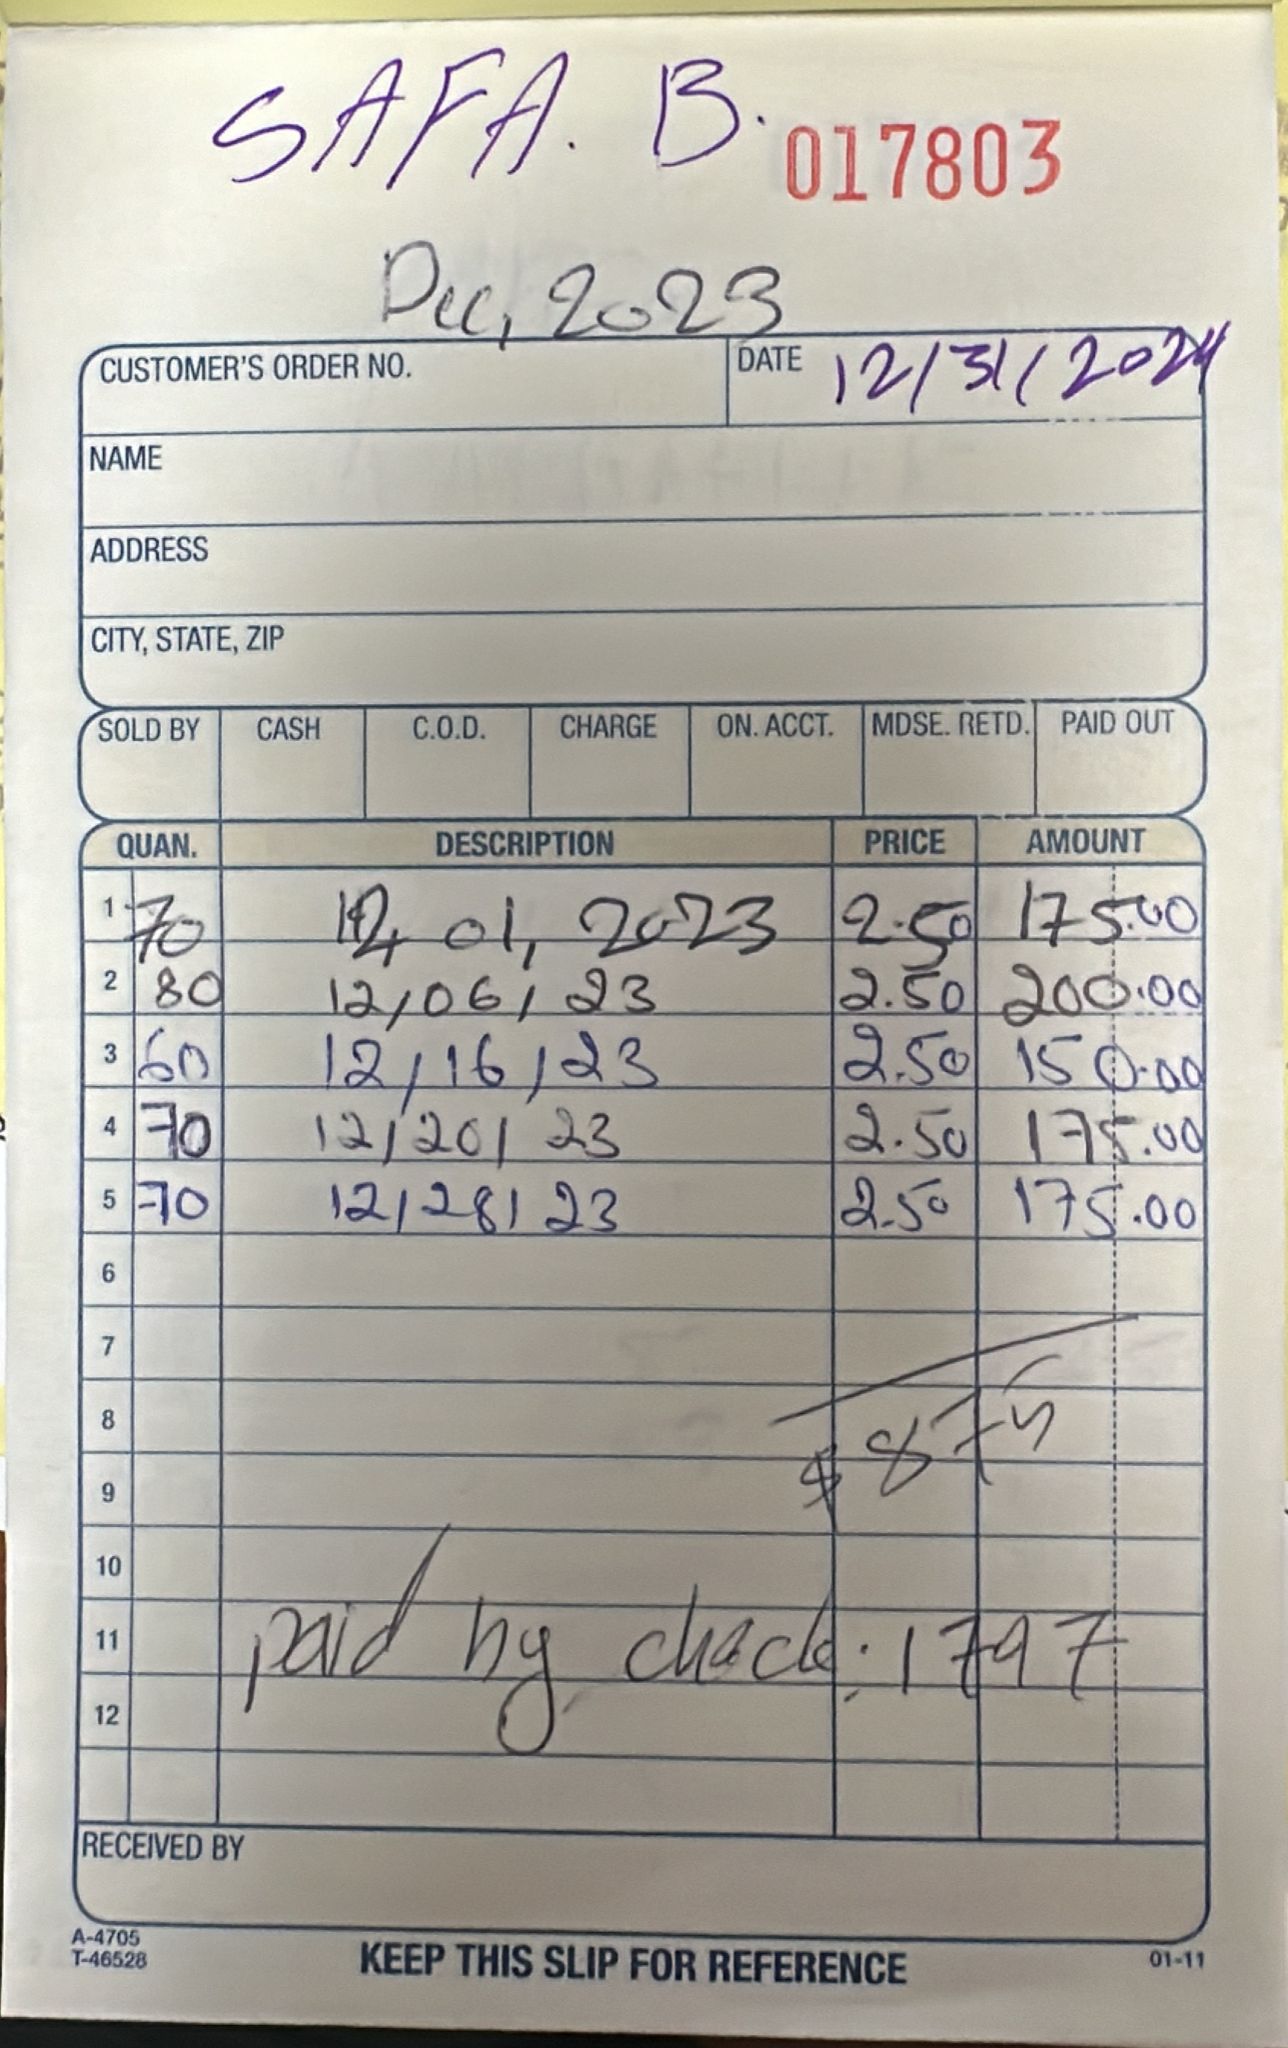 SAFA. B.
017803
Dec, 2023
CUSTOMER'S ORDER NO. DATE 12/31/2024
NAME
ADDRESS
CITY, STATE, ZIP
SOLD BY CASH C.O.D. CHARGE ON. ACCT. MDSE. RETD. PAID OUT
QUAN. DESCRIPTION PRICE AMOUNT
1 70 12, 01, 2023 2.50 175.00
2 80 12/06/23 2.50 200.00
3 60 12/16/23 2.50 150.00
4 70 12/20/23 2.50 175.00
5 70 12/28/23 2.50 175.00
6
7
8 $875
9
10
11 paid by check: 1797
12
RECEIVED BY
A-4705
T-46528
KEEP THIS SLIP FOR REFERENCE 01-11